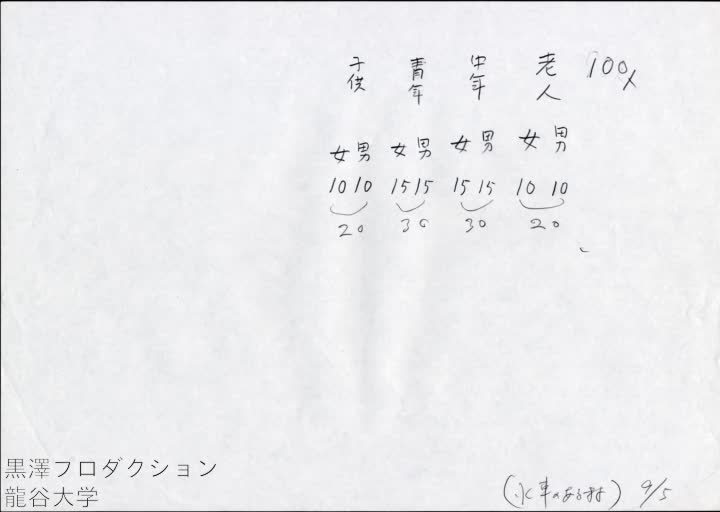 100人
老人
男 女
10 10
20
中年
男 女
15 15
30
青年
男 女
15 15
30
子供
男 女
10 10
20
(水車のある村) 9/5
黒澤フロダクション
龍谷大学